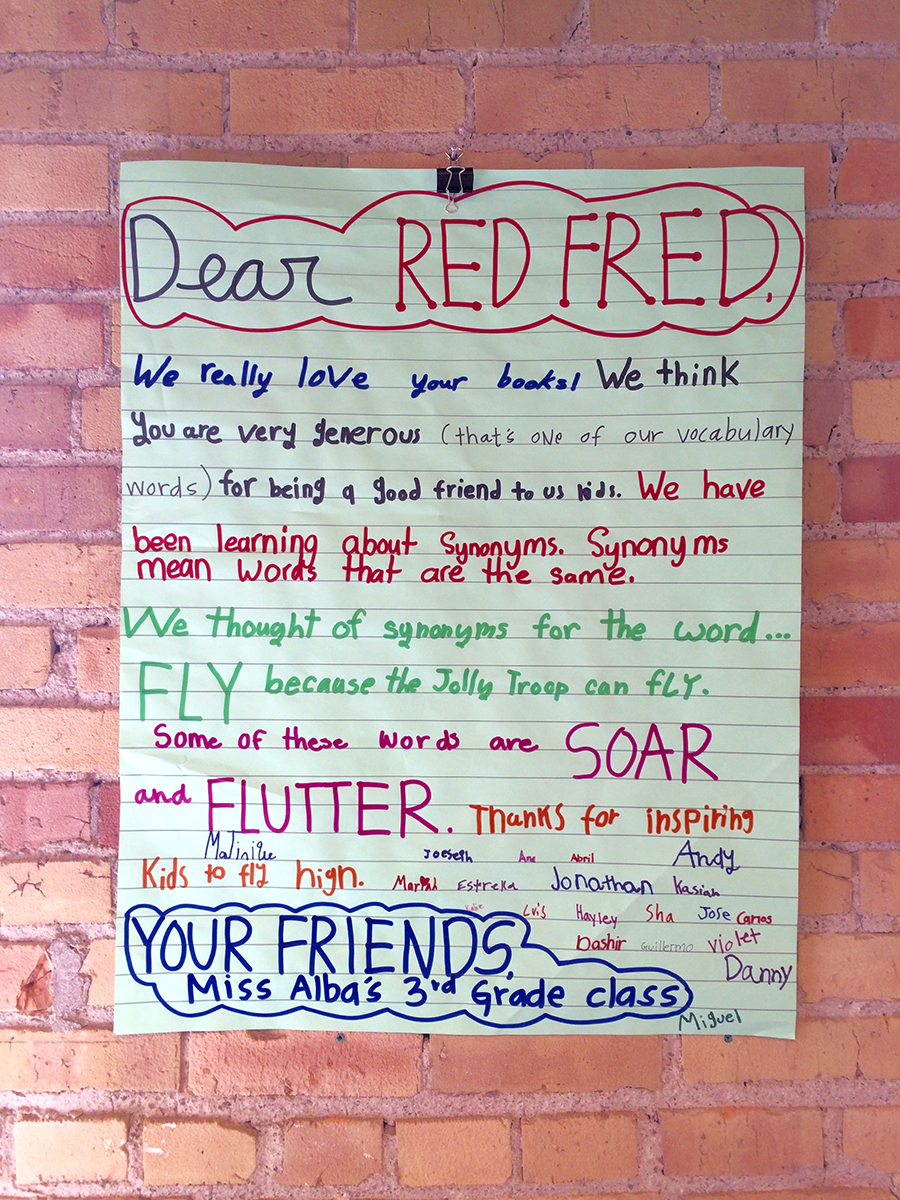 Dear RED FRED,
We really love your books! We think
you are very generous (that's one of our vocabulary
words) for being a good friend to us kids. We have
been learning about Synonyms. Synonyms
mean words that are the same.
We thought of synonyms for the word...
FLY because the Jolly Troop can fLY.
Some of these words are SOAR
and FLUTTER. Thanks for inspiring
Kids to fly high.
Joeseph Ana Abril Andy
Estrella Jonathan Kasiah
Luis Hayley Sha Jose Carlos
Dashir Guillermo Violet
Danny
YOUR FRIENDS,
Miss Alba's 3rd Grade class
Miguel